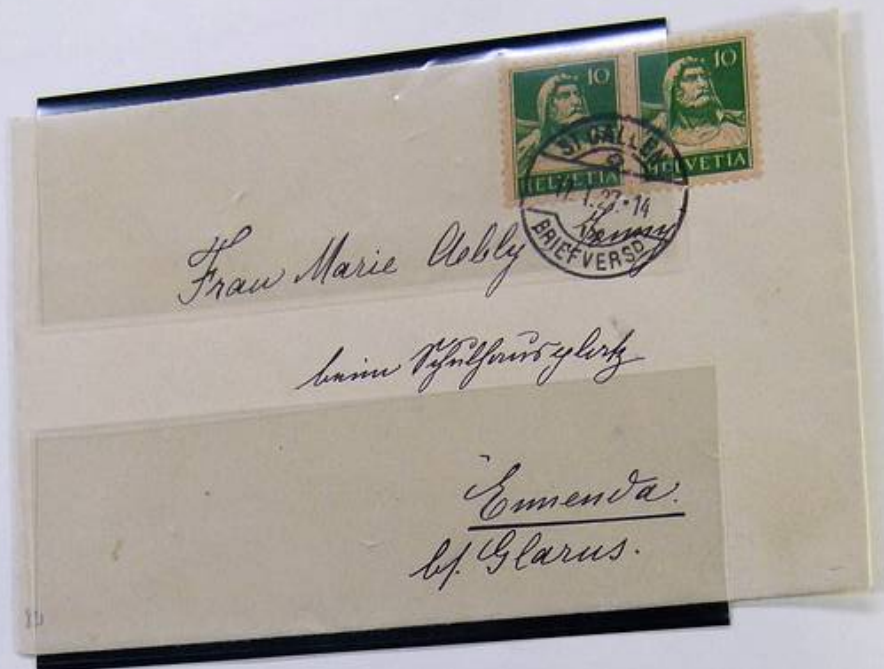 10 10
HELVETIA HELVETIA
ST. GALLEN
1.23.-14
BRIEFVERSD.
Frau Marie Aebly Jenny
beim Schulhausplatz
Ennenda.
b/. Glarus.